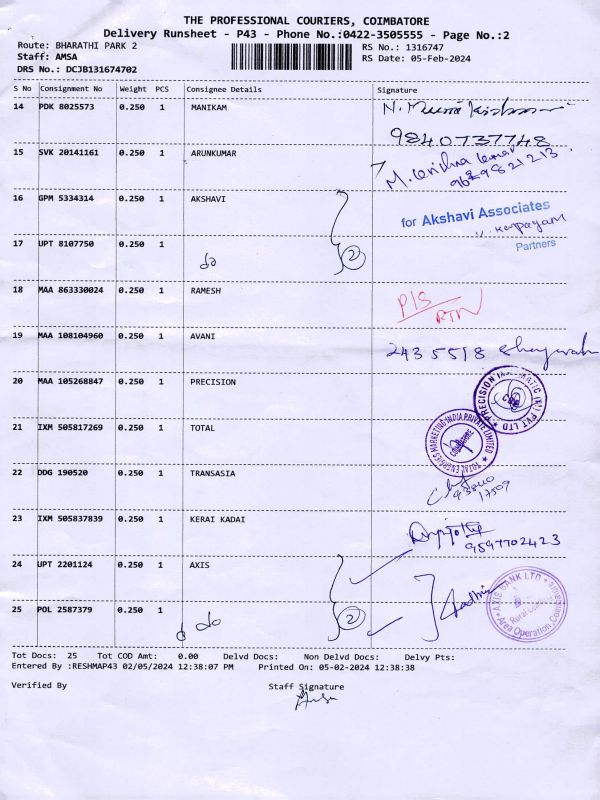 THE PROFESSIONAL COURIERS, COIMBATORE
Delivery Runsheet - P43 - Phone No.:0422-3505555 - Page No.:2
Route: BHARATHI PARK 2
RS No.: 1316747
Staff: AMSA
RS Date: 05-Feb-2024
DRS No.: DCJB131674702
S No Consignment No Weight PCS Consignee Details Signature
14 PDK 8025573 0.250 1 MANIKAM
9840737748
15 SVK 20141161 0.250 1 ARUNKUMAR M. Krishna Kumar
9629821213
16 GPM 5334314 0.250 1 AKSHAVI
for Akshavi Associates
V. Karpagam
Partners
17 UPT 8107750 0.250 1 do 2
18 MAA 863330024 0.250 1 RAMESH P/S
RTN
19 MAA 108104960 0.250 1 AVANI 2435518
20 MAA 105268847 0.250 1 PRECISION
21 IXM 505817269 0.250 1 TOTAL
TOTAL ENERGIES MARKETING INDIA PRIVATE LIMITED
22 DDG 190520 0.250 1 TRANSASIA
23 IXM 505837839 0.250 1 KERAI KADAI
9597702423
24 UPT 2201124 0.250 1 AXIS
AXIS BANK LTD
25 POL 2587379 0.250 1 do 2
Tot Docs: 25 Tot COD Amt: 0.00 Delvd Docs: Non Delvd Docs: Delvy Pts:
Entered By :RESHMAP43 02/05/2024 12:38:07 PM Printed On: 05-02-2024 12:38:38
Verified By Staff Signature